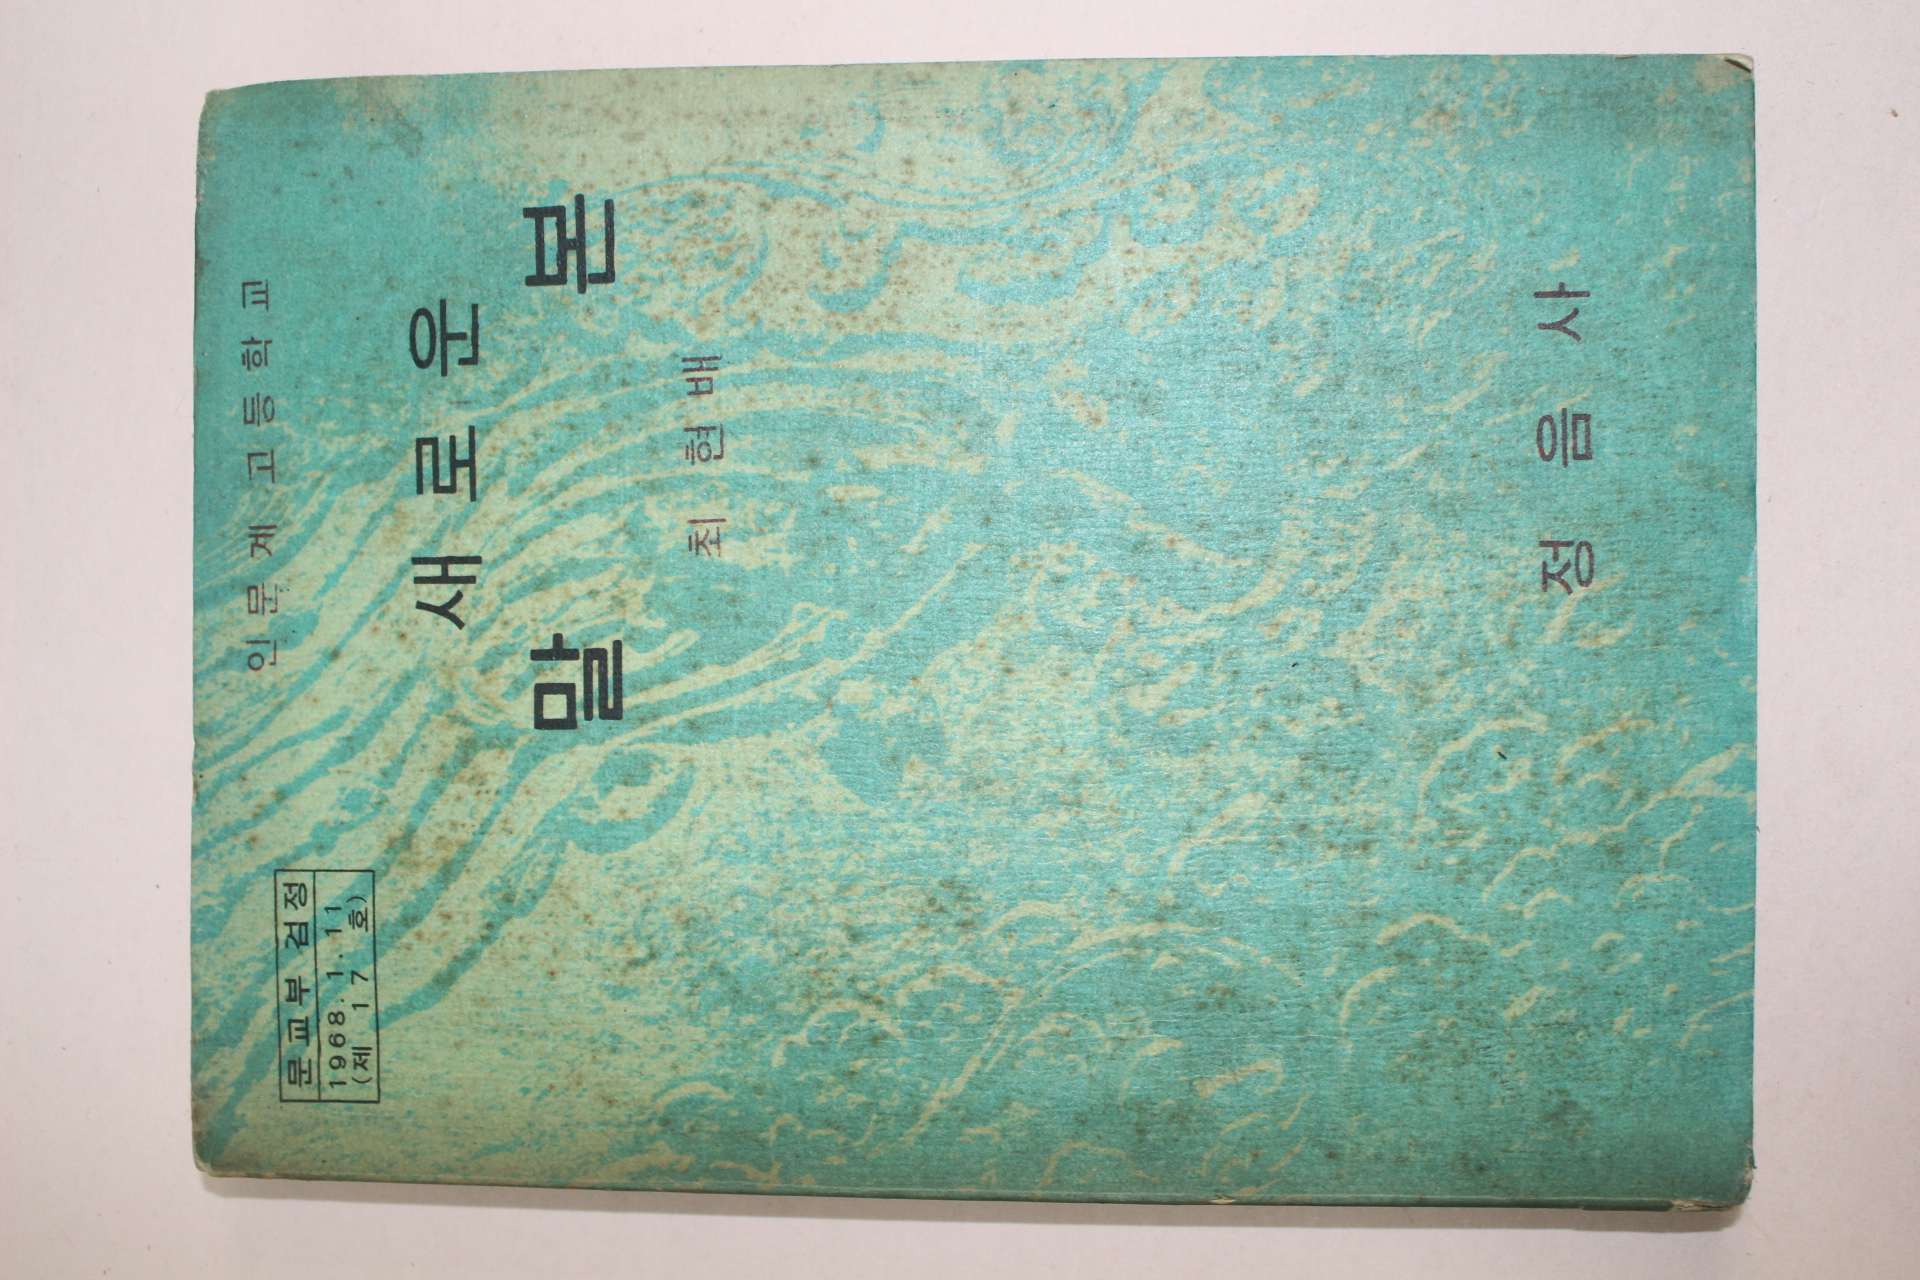 문교부 검정
1968. 1. 11
(제 17 호)
인문계 고등학교
새로운
말본
최현배
정음사